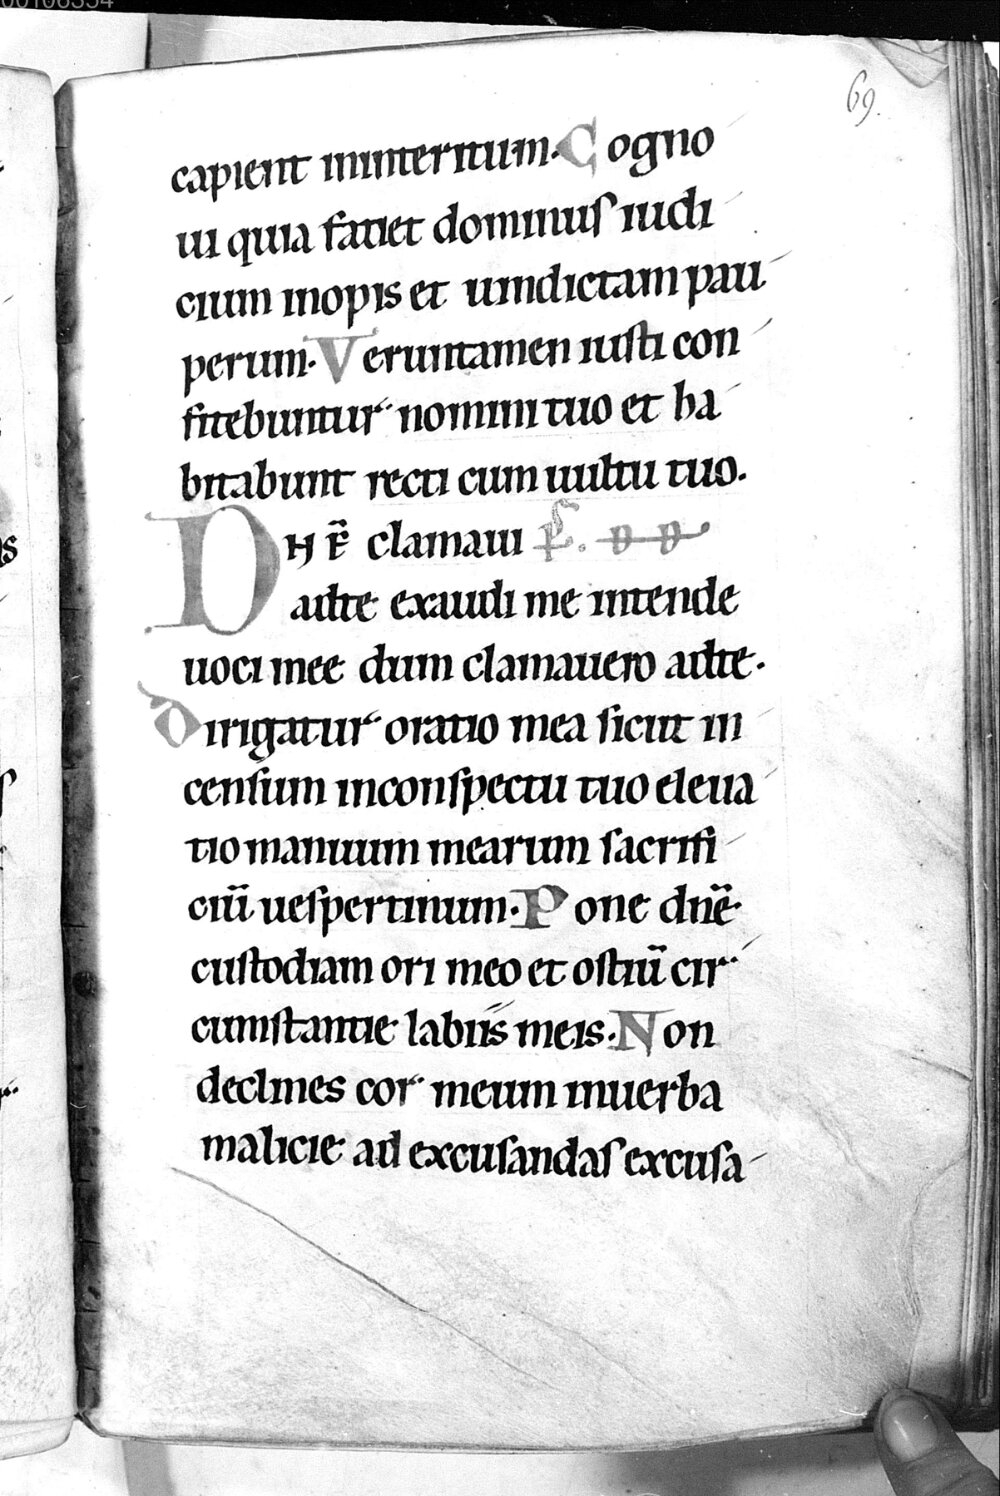 69.
capient ininteritum. Cogno
ui quia faciet dominus iudi
cium inopis et uindictam pau
perum. Veruntamen iusti con
fitebuntur nomini tuo et ha
bitabunt recti cum uultu tuo.
DNE clamaui ps. DD
adte exaudi me intende
uoci mee dum clamauero adte.
Dirigatur oratio mea sicut in
censum inconspectu tuo eleua
tio manuum mearum sacrifi
ciū uespertinum. Pone dnē
custodiam ori meo et ostiū cir
cumstantie labiis meis. Non
declines cor meum inuerba
malicie ad excusandas excusa